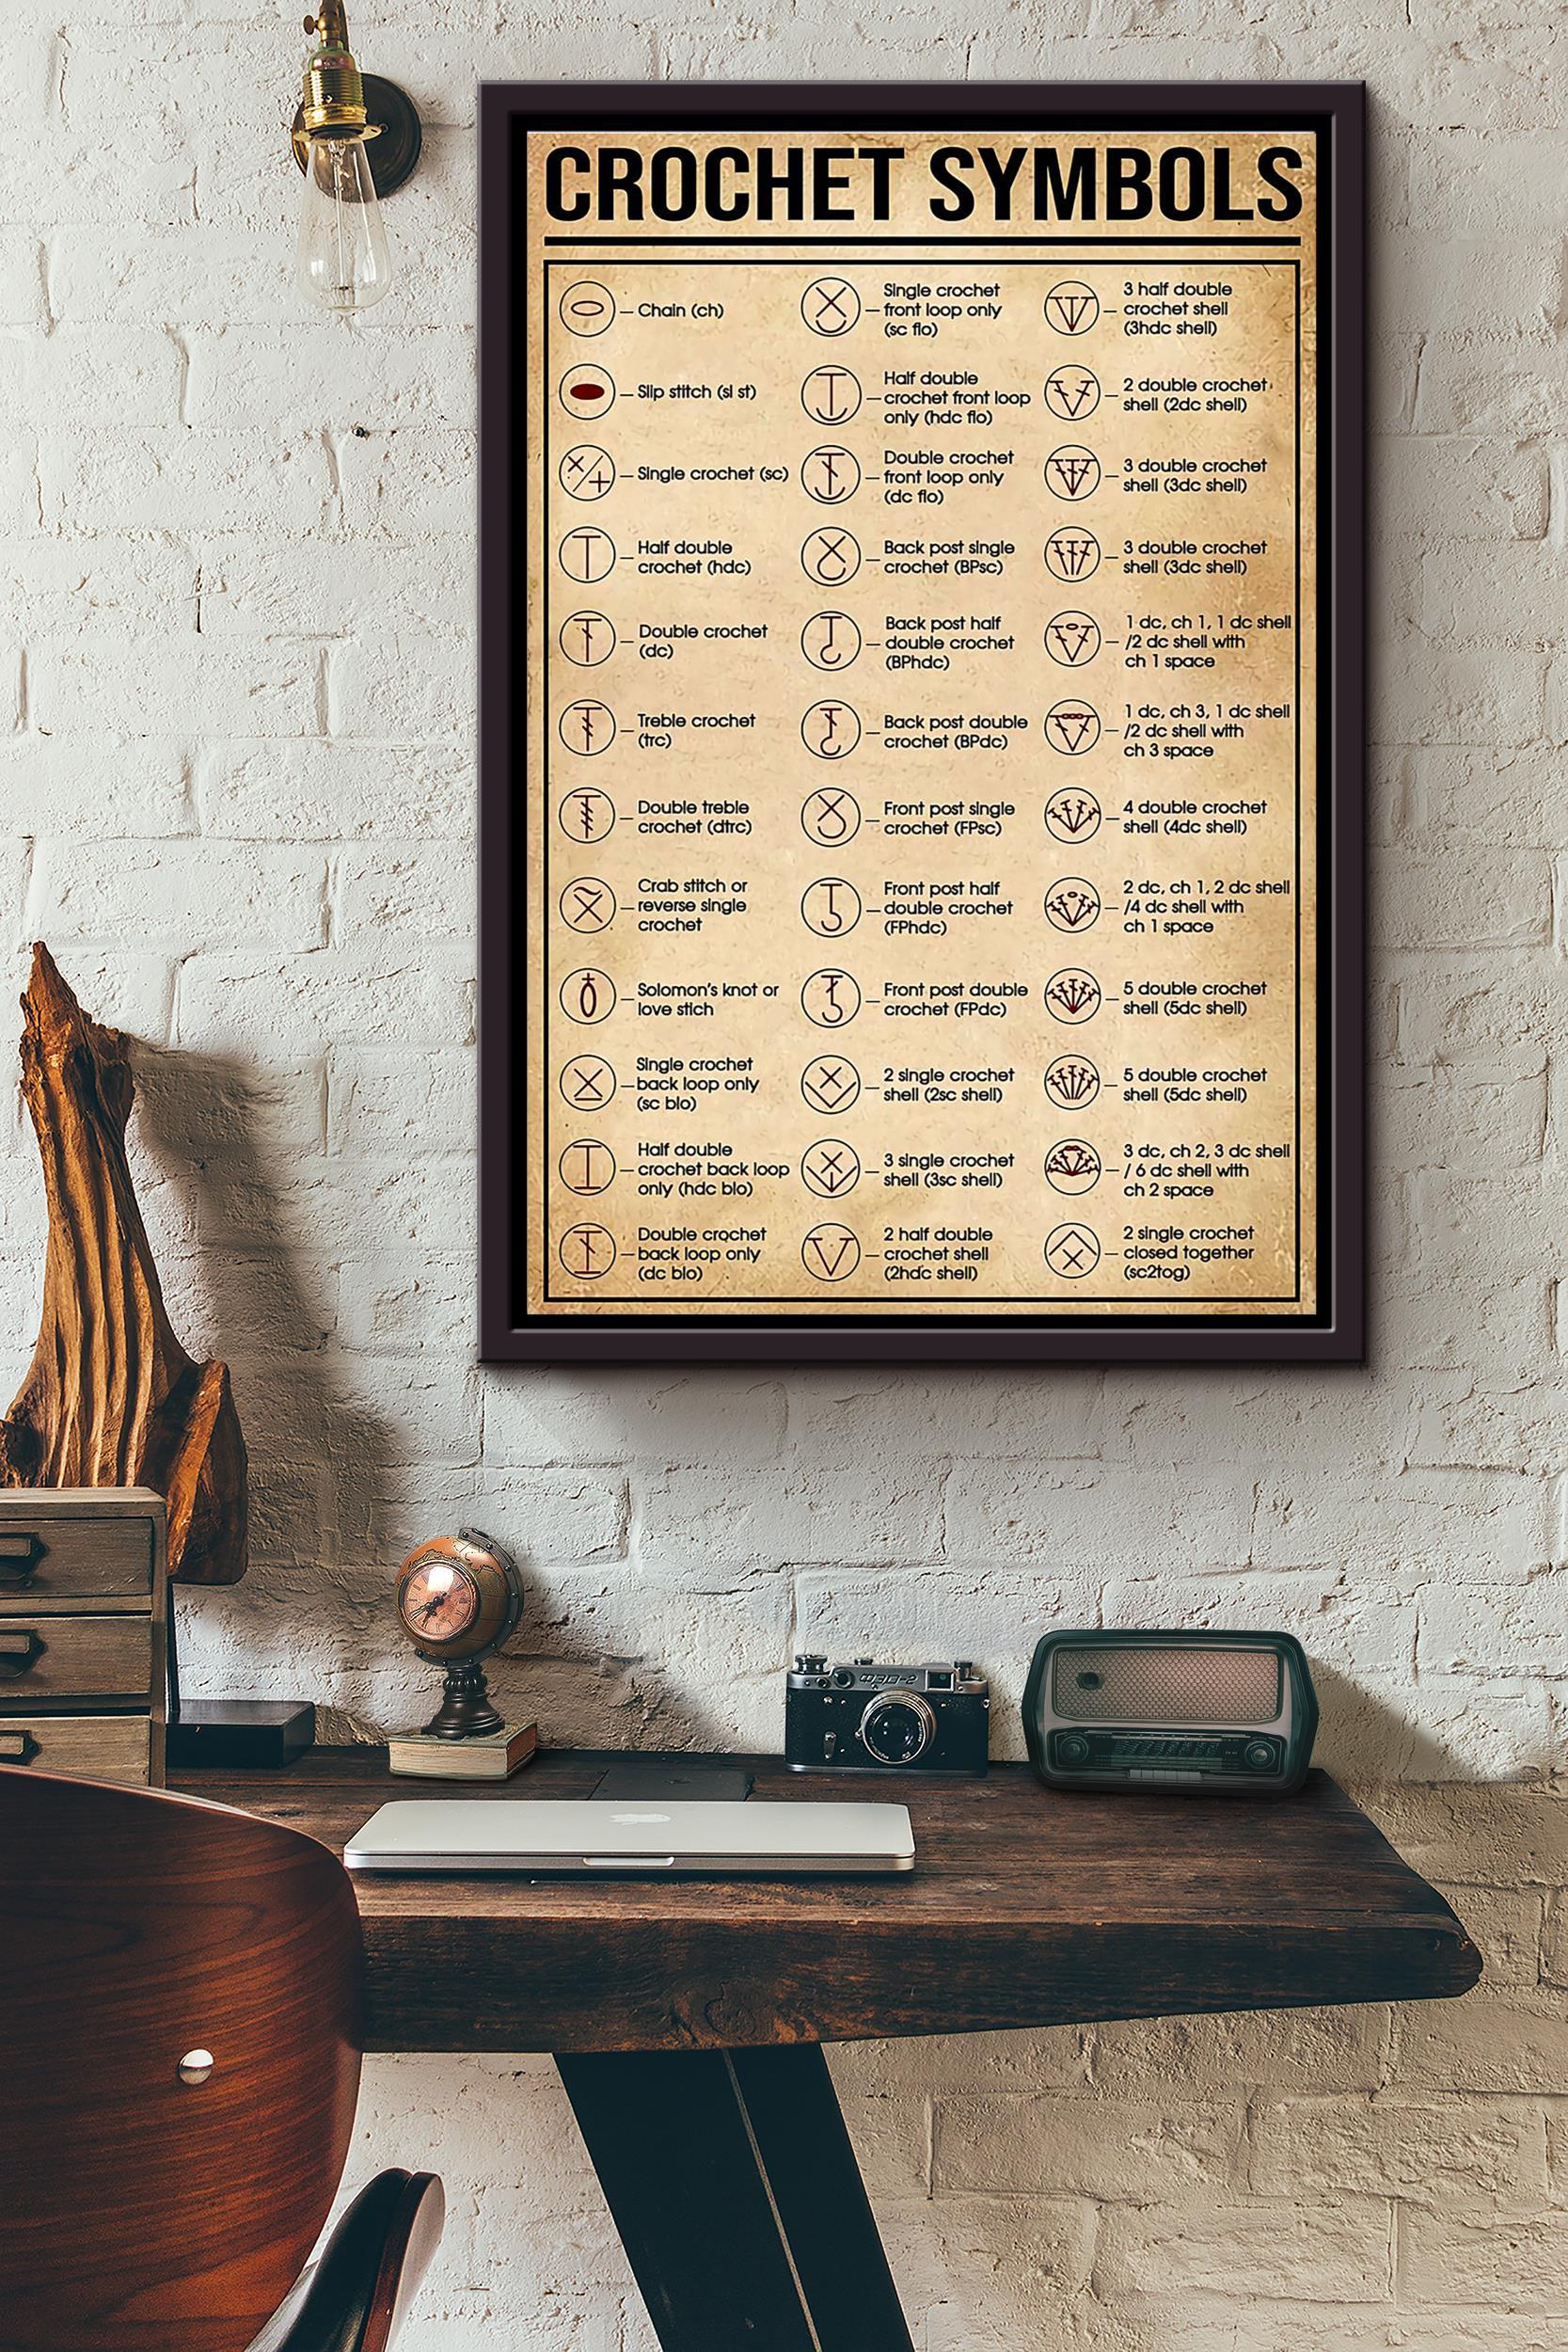 CROCHET SYMBOLS
Chain (ch)
Slip stitch (sl st)
Single crochet (sc)
Half double
crochet (hdc)
Double crochet
(dc)
Treble crochet
(trc)
Double treble
crochet (dtrc)
Crab stitch or
reverse single
crochet
Solomon's knot or
love stich
Single crochet
back loop only
(sc blo)
Half double
crochet back loop
only (hdc blo)
Double crochet
back loop only
(dc blo)
Single crochet
front loop only
(sc flo)
Half double
crochet front loop
only (hdc flo)
Double crochet
front loop only
(dc flo)
Back post single
crochet (BPsc)
Back post half
double crochet
(BPhdc)
Back post double
crochet (BPdc)
Front post single
crochet (FPsc)
Front post half
double crochet
(FPhdc)
Front post double
crochet (FPdc)
2 single crochet
shell (2sc shell)
3 single crochet
shell (3sc shell)
2 half double
crochet shell
(2hdc shell)
3 half double
crochet shell
(3hdc shell)
2 double crochet
shell (2dc shell)
3 double crochet
shell (3dc shell)
3 double crochet
shell (3dc shell)
1 dc, ch 1, 1 dc shell
/2 dc shell with
ch 1 space
1 dc, ch 3, 1 dc shell
/2 dc shell with
ch 3 space
4 double crochet
shell (4dc shell)
2 dc, ch 1, 2 dc shell
/4 dc shell with
ch 1 space
5 double crochet
shell (5dc shell)
5 double crochet
shell (5dc shell)
3 dc, ch 2, 3 dc shell
/ 6 dc shell with
ch 2 space
2 single crochet
closed together
(sc2tog)